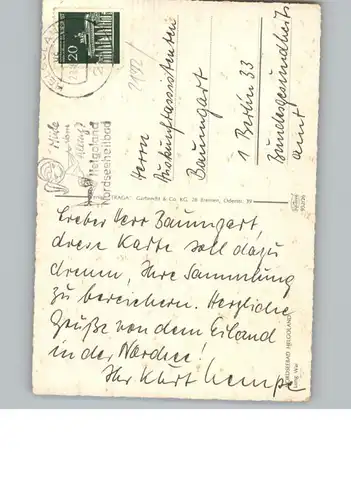 20
Helgoland
Nordseeheilbad
Herrn
Auskunftassistenten
Baumgart
1 Berlin 33
Bundesgesundheits
amt
Garbrecht & Co. KG, 28 Bremen, Odenstr. 39
Lieber Herr Baumgart,
diese Karte soll dazu
dienen, Ihre Sammlung
zu bereichern. Herzliche
Grüße von dem Eiland
in der Nordsee!
Ihr Kurt Kempe
NORDSEEBAD HELGOLAND
Lung Wai